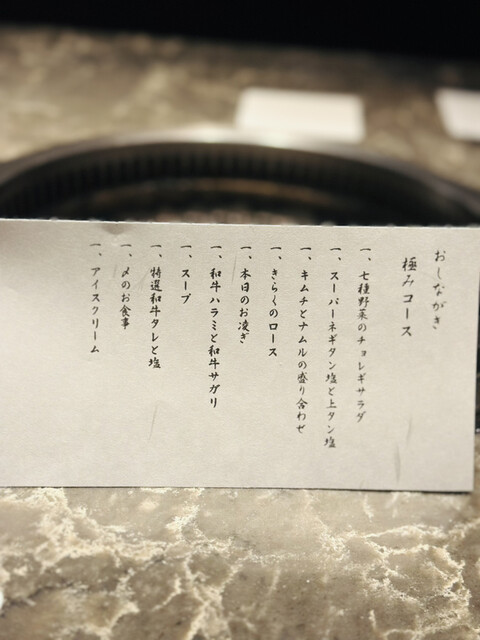 おしながき
極みコース
一、七種野菜のチョレギサラダ
一、スーパーネギタン塩と上タン塩
一、キムチとナムルの盛り合わせ
一、きらくのロース
一、本日のお凌ぎ
一、和牛ハラミと和牛サガリ
一、スープ
一、特選和牛タレと塩
一、〆のお食事
一、アイスクリーム